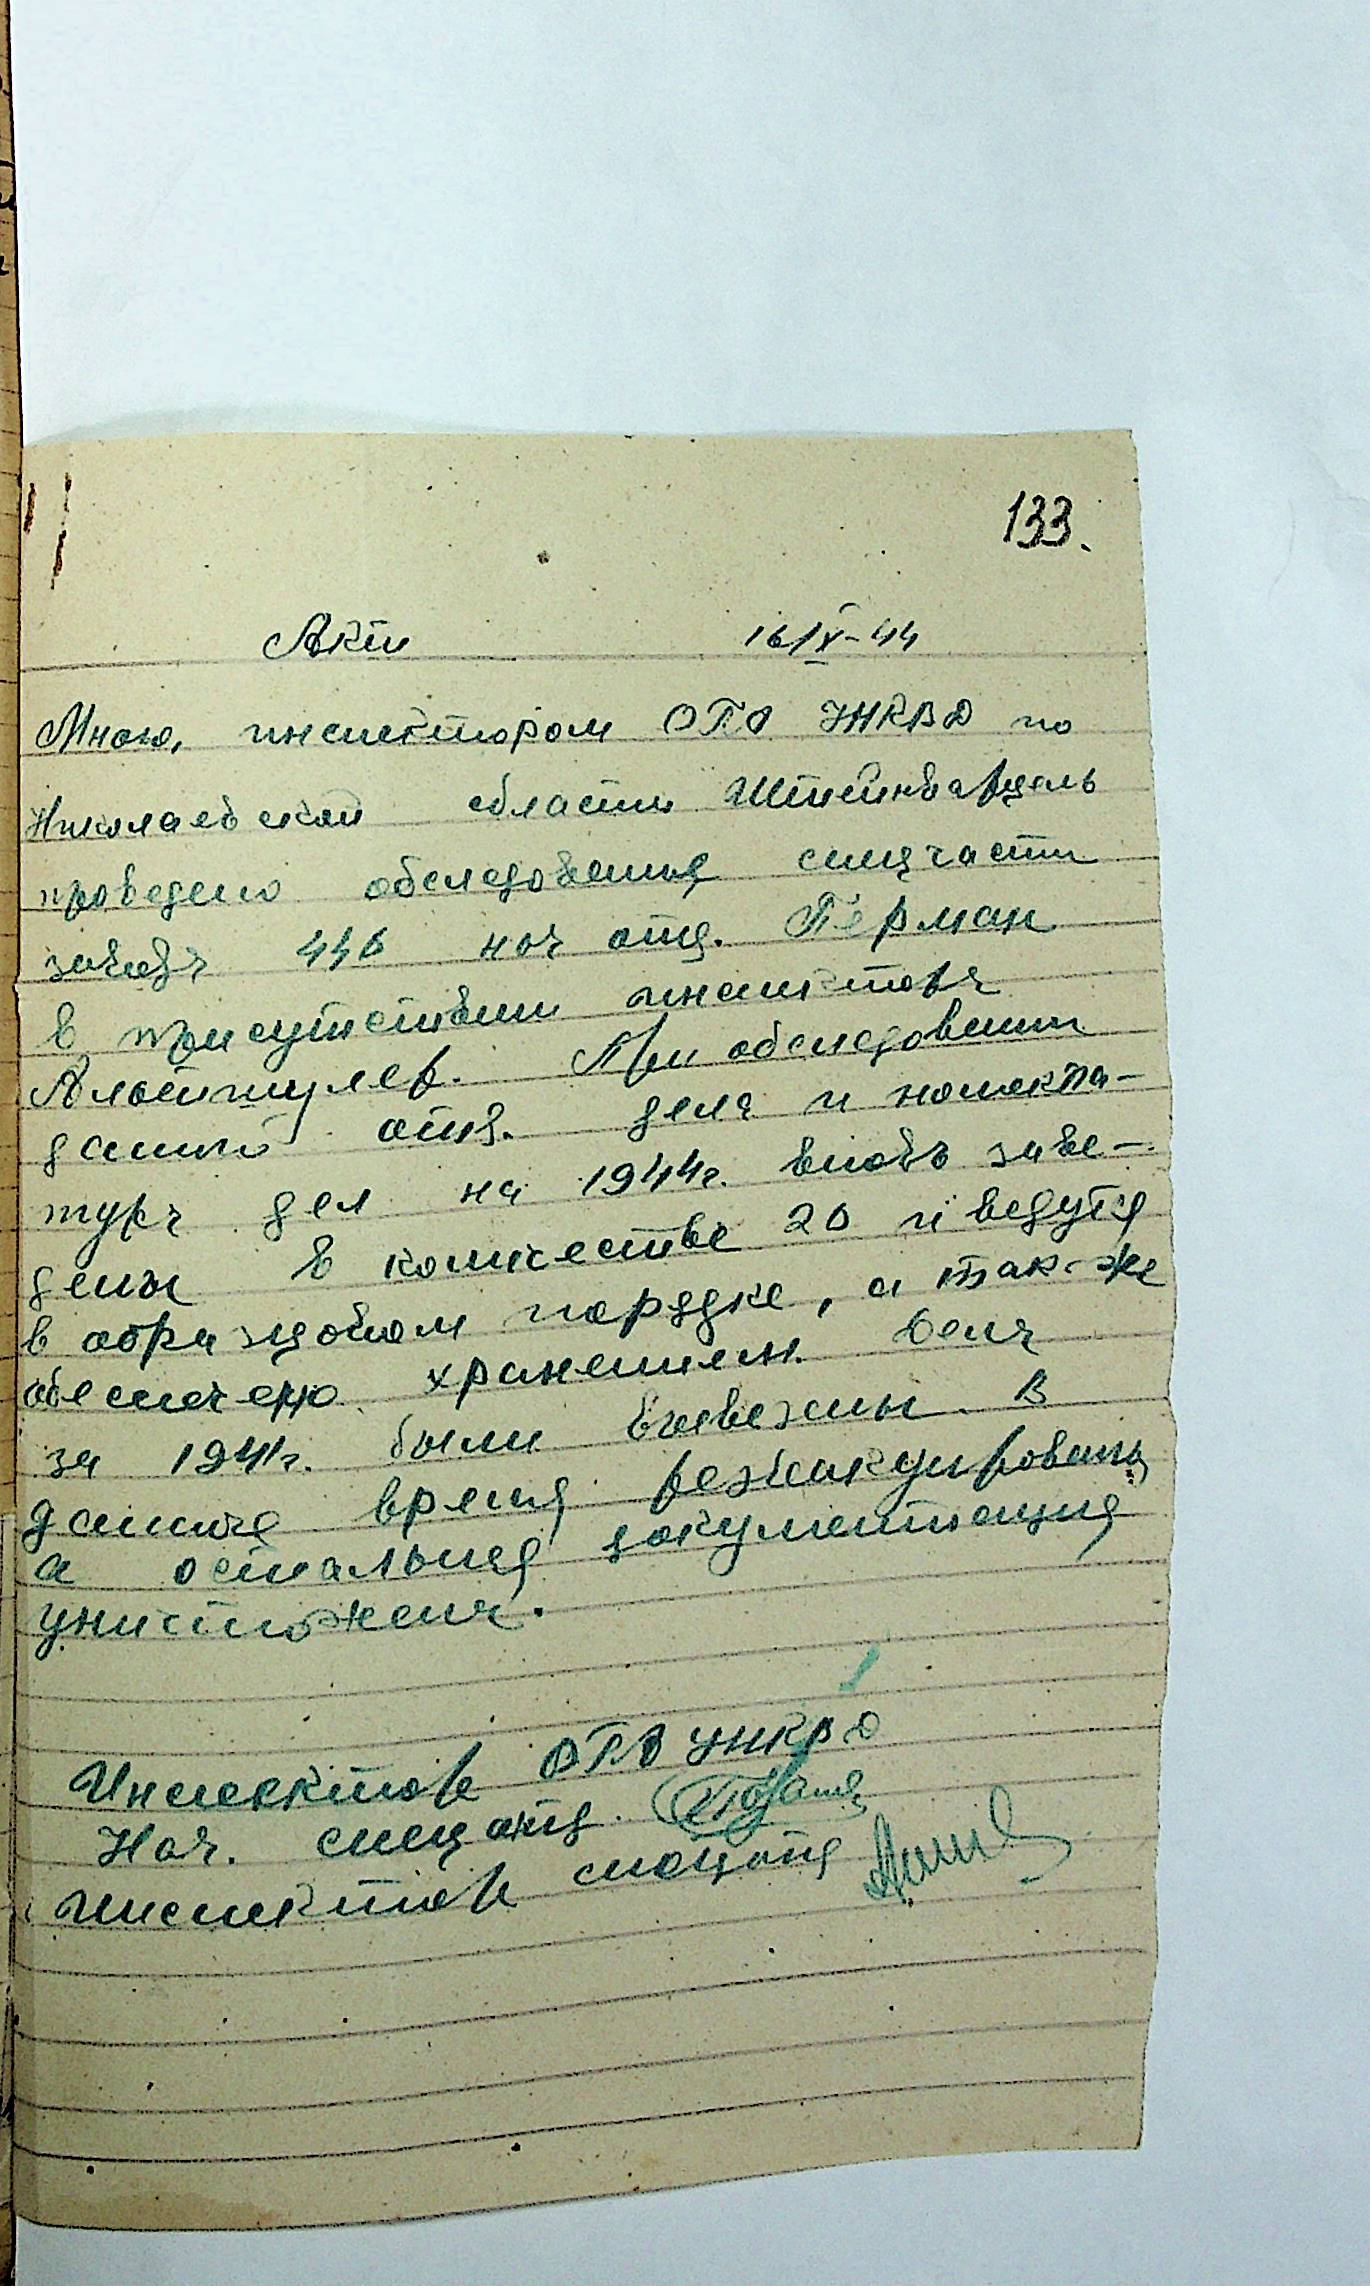 133.
Акт 16/IX-44
Мною, инспектором ОГА УНКВД по
Николаевской области Штейнварцель
проведено обследование спецчасти
завода 446 нач отд. Герман
в присутствии инспектора
Альтшулер. При обследовании
данной отд. дела и номенкла-
тура дел на 1944г. вновь заве-
дены в количестве 20 и ведутся
в образцовом порядке, а так-же
обеспечено хранением. Дела
за 1941г. были вывезены. В
данное время реэвакуированы
а остальная документация
уничтожена.
Инспектор ОГА УНКВД
Нач. спецотд.
инспектор спецотд